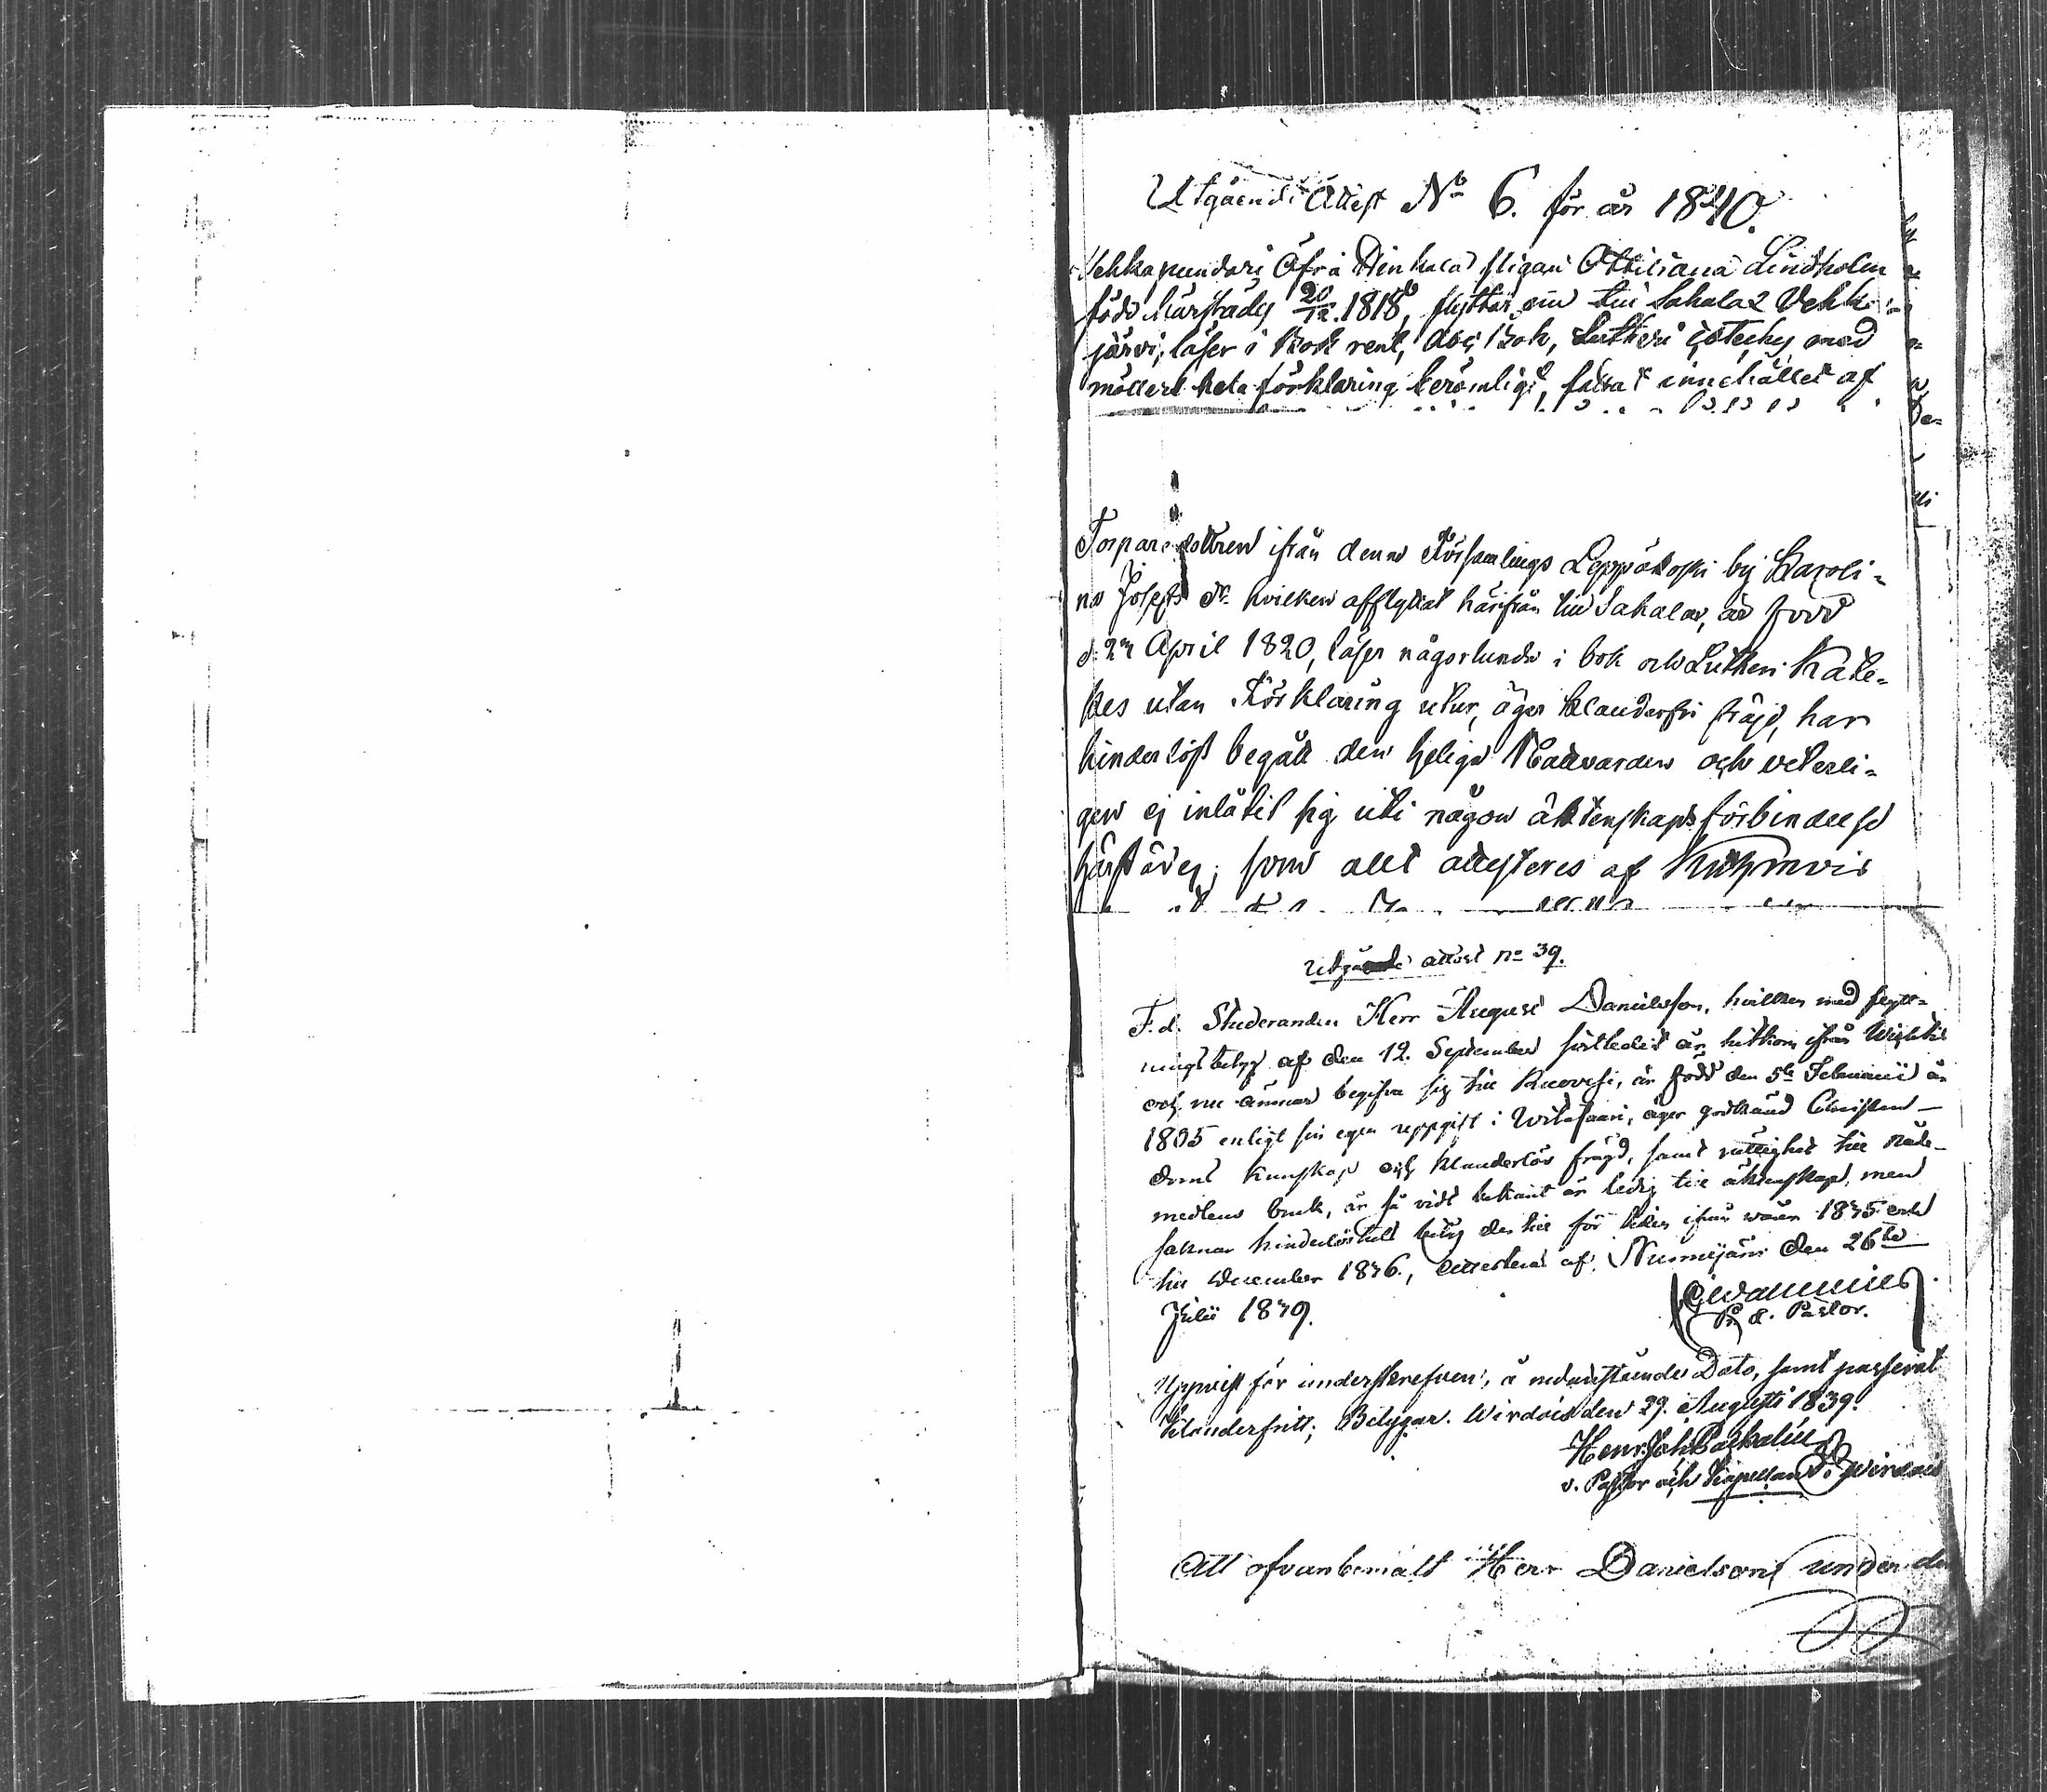 Utgående Attest No 6. för år 1840.
Öfre Pigan Ottiliana Lindholm
född härstädes 20/12 1818, flyttar nu till Sahalax Vehka-
järvi, läser i Bok rent, Abc Bok, Lutheri Cateches med
möllers hela förklaring berömligt, fattat innehållet af
Torpare dottren ifrån denna Församlings Leppäkoski by Karoli-
na Josephs dr hvilken afflyttat härifrån till Sahalax, är född
d. 27 April 1820, läser någorlunda i bok och Lutheri Kate-
kes utan Förklaring utur, äger klanderfri fräjd, har
hinderlöst begått den heliga Nattvarden och veterli-
gen ej inlåtit sig uti någon äktenskapsförbindelse
härstädes; som allt attesteres af Kuhmois
Utgående attest no 39.
F.d. Studeranden Herr August Danielsson, hvilken med flytt-
ningsbetyg af den 12. September sistledit år hitkom ifrån Wichtis
och nu ämnar begifva sig till Ruovesi, är född den 5te Februarii år
1805 enligt sin egen uppgift i Witasaari, äger godkänd Christen-
doms kunskap och klanderlös fräjd, samt rättighet till Nåde-
medlens bruk, är så vidt bekant är ledig till äktenskap, men
saknar hinderlöshets betyg der till för tiden ifrån våren 1835 och
till December 1836, attesterar af. Nurmijärvi den 26te
Julii 1839.
Pastor.
Uppvist för underskrefven, å nedanstående Dato, samt passerat
klanderfritt; Betygar. Wirdois den 29. Augusti 1839.
Henr. Joh.
v. Pastor och Kapellan i Wirdois
Att ofvanbemält Herr Danielson under den